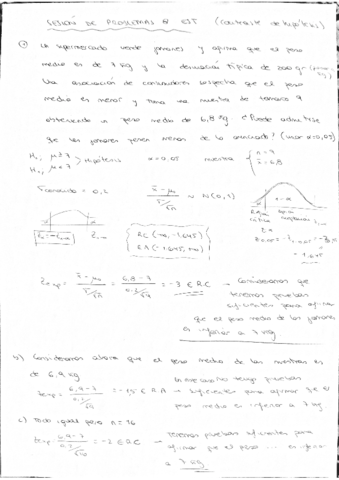 SESIÓN DE PROBLEMAS 8 EST (CONTRASTE de hipótesis)
Un supermercado vende jamones y afirma que el peso
medio es de 7 kg y la desviación típica de 200 g
Una asociación de consumidores sospecha que el peso
medio es menor y toma una muestra de tamaño 9
obteniendo un peso medio de 6,8 kg ¿Puede admitirse
que los jamones pesen menos de lo anunciado? (usar α=0,05)
H₀, μ ≥ 7
H₁, μ < 7 > Hipótesis α=0,05 muestra { n=9 x̄=6,8
Tomando = 0,2 ~ N(0,1)
RC (-∞, -1,645)
RA (-1,645, ∞)
= -3 ∈ RC → Consideramos que
tenemos pruebas
suficientes para afirmar
que el peso medio de los jamones
es inferior a 7 kg
b) Consideramos ahora que el peso medio de las muestras es
de 6,9 kg
= -1,5 ∈ RA → suficientes para afirmar que el
peso medio es inferior a 7 kg
c) Todo igual pero n=36
= -3 ∈ RC → Tenemos pruebas suficientes para
afirmar que el peso ... es inferior
a 7 kg